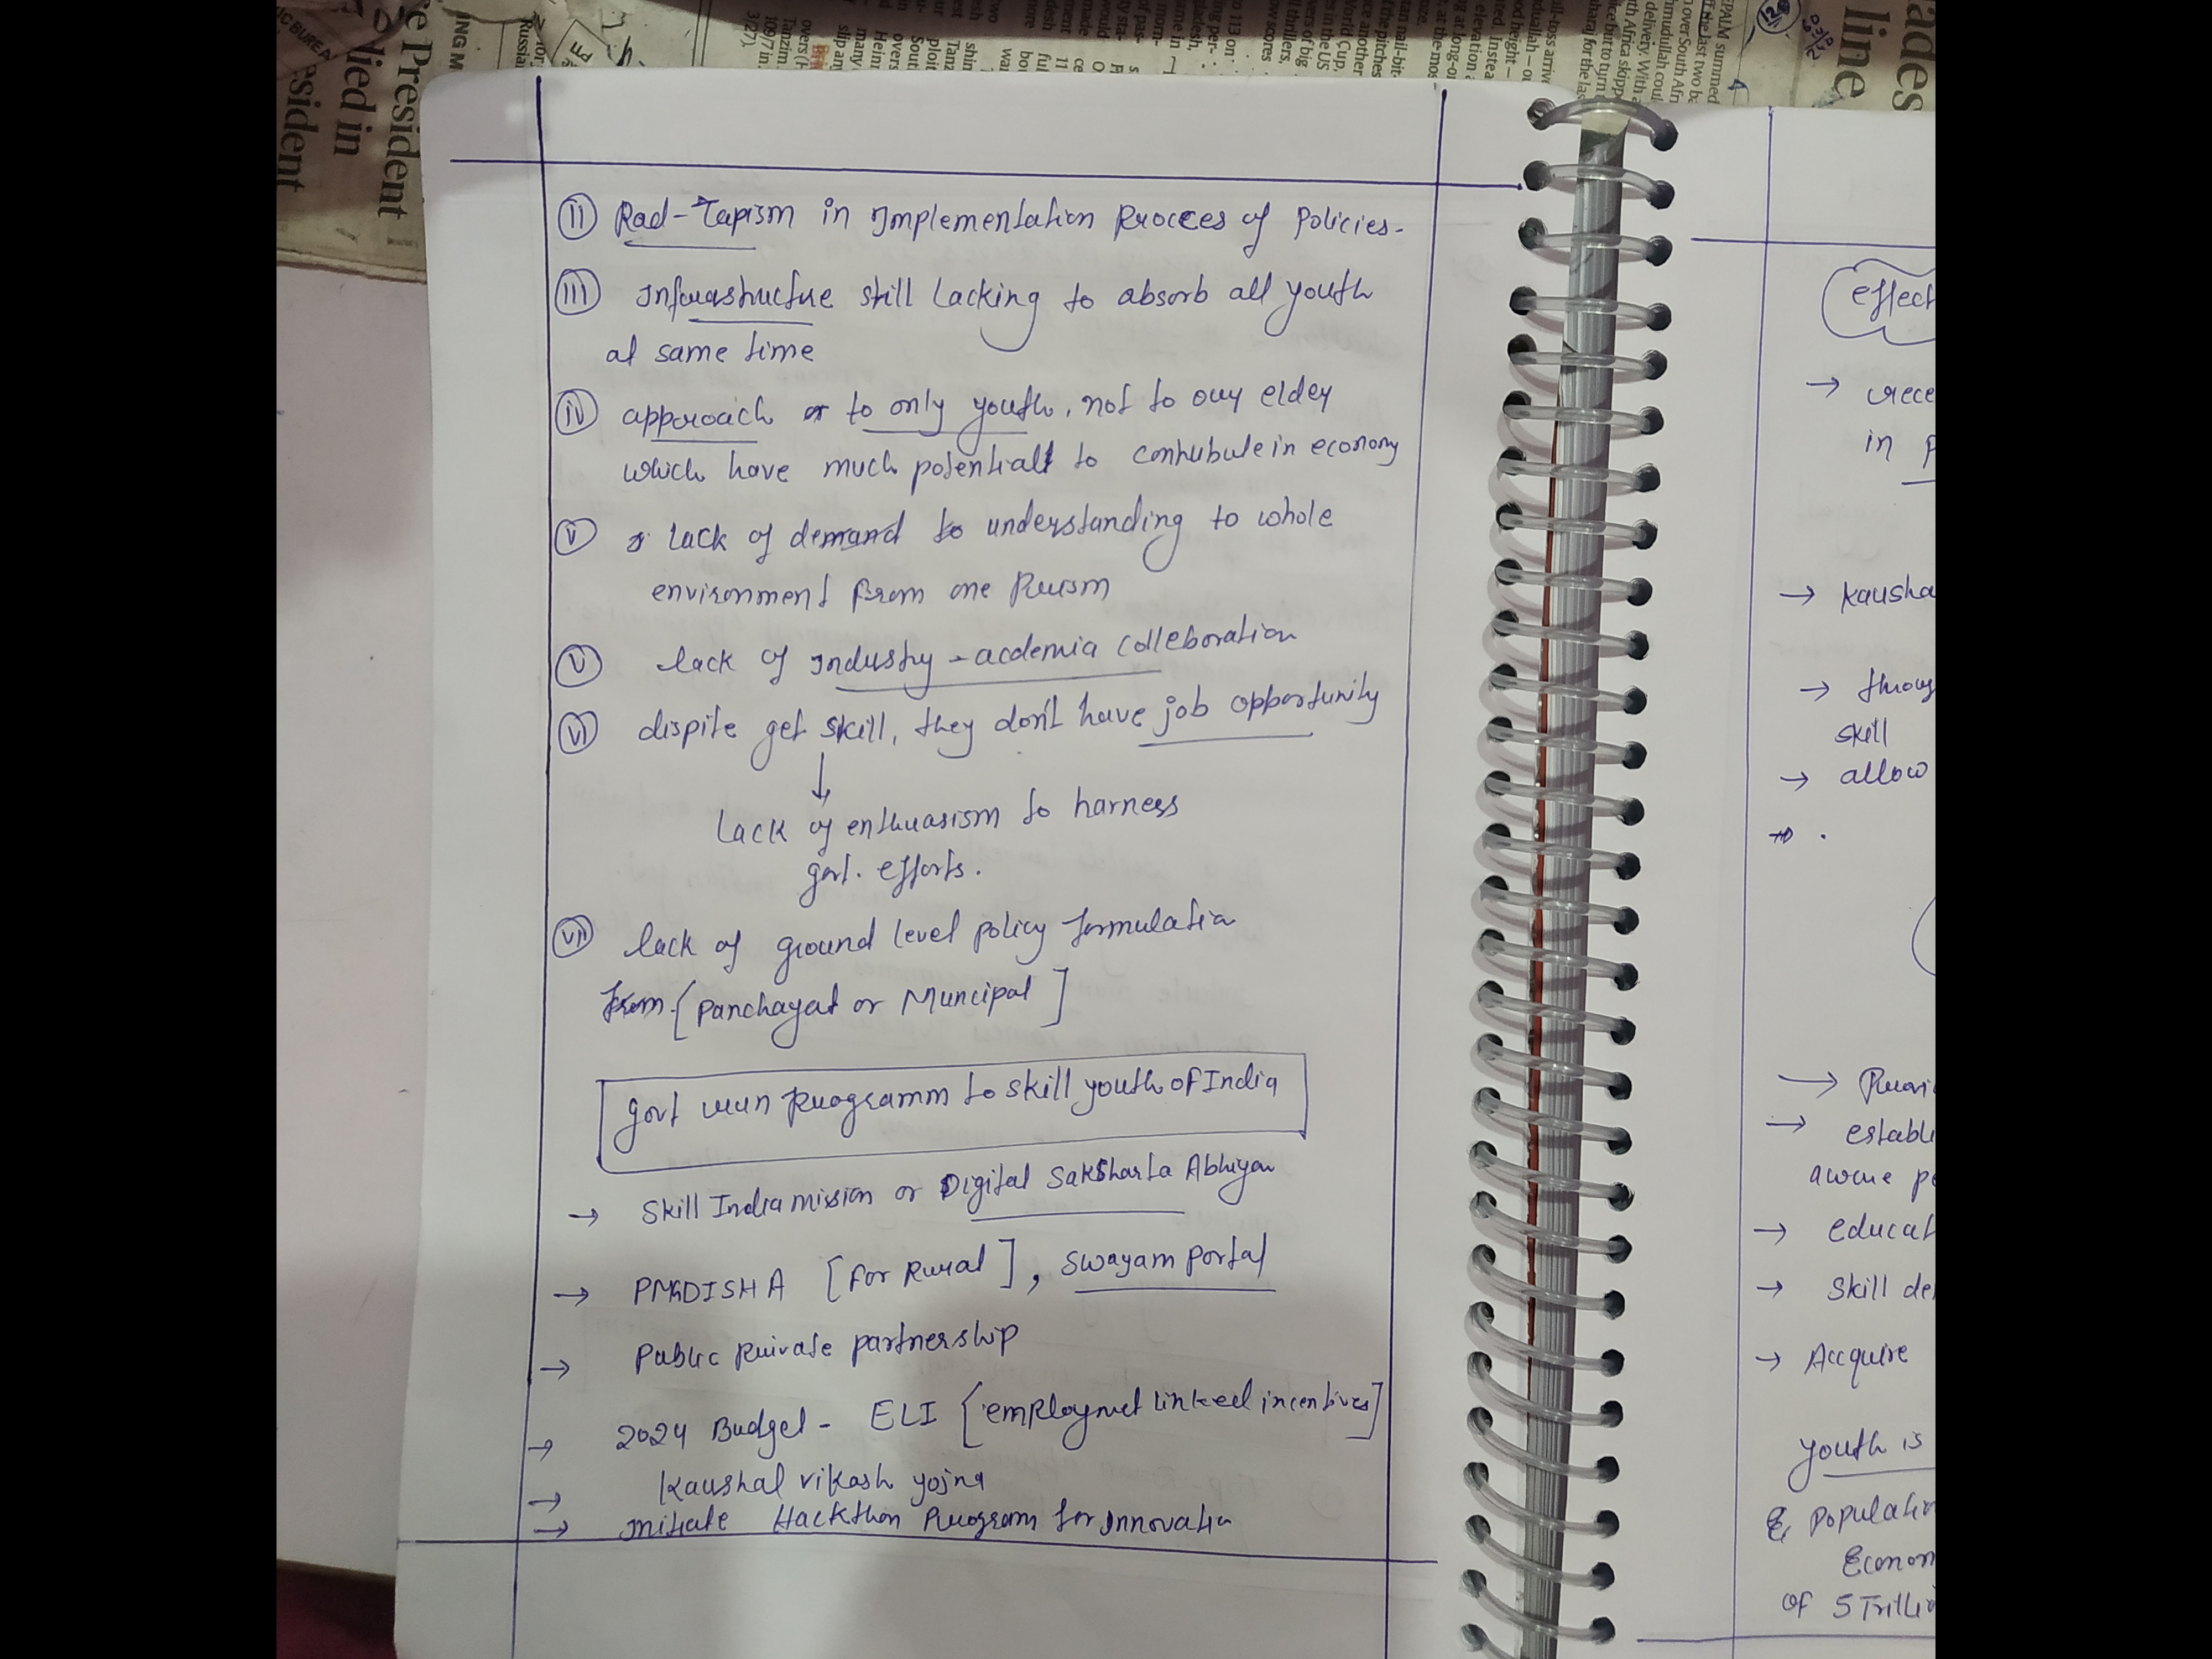 (ii) Rad-Tapism in Implementation Process of Policies.
(iii) Infrastructure still lacking to absorb all youth
at same time
(iv) approach to only youth, not to our elder
which have much potential to contribute in economy
(v) lack of demand to understanding to whole
environment from one Prism
(v) lack of Industry - acdemia colleboration
(vi) dispite get skill, they don't have job opportunity
↓
Lack of enthuasism to harness
govt. efforts.
(vii) lack of ground level policy formulation
from [Panchayat or Muncipal]
Govt run Programm to skill youth of India
→ Skill India mission or Digital Saksharta Abhiyan
→ PMGDISHA [for Rural], Swayam portal
→ Public Private partnership
→ 2024 Budget - ELI [employmet linked incentives]
→ Kaushal vikash yojna
→ Initiate Hackthon Program for Innovation
effect
→ rece
in p
→ Kausha
→ throug
skill
→ allow
→ Provi
→ establi
aware pe
→ educat
→ Skill de
→ Accquire
youth is
& Populatin
Econom
of 5 Trillio
e President
lied in
esident
ades
line